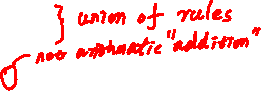 } union of rules
not arithmatic "addition"